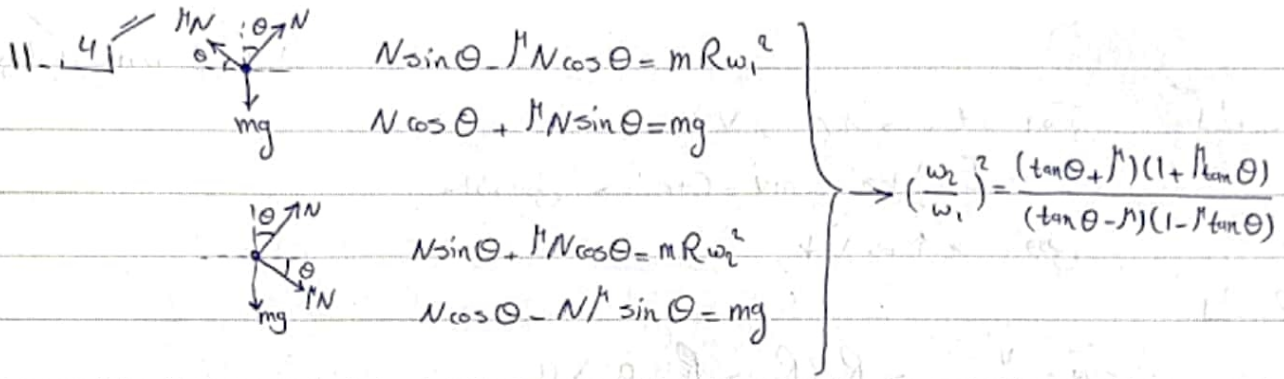 11- 4
μN θ N
θ
mg
N sin θ - μN cos θ = mRω₁²
N cos θ + μN sin θ = mg
θ N
θ
μN
mg
N sin θ + μN cos θ = mRω₂²
N cos θ - Nμ sin θ = mg
→ (ω₂/ω₁)² = (tan θ + μ)(1 + μ tan θ) / (tan θ - μ)(1 - μ tan θ)